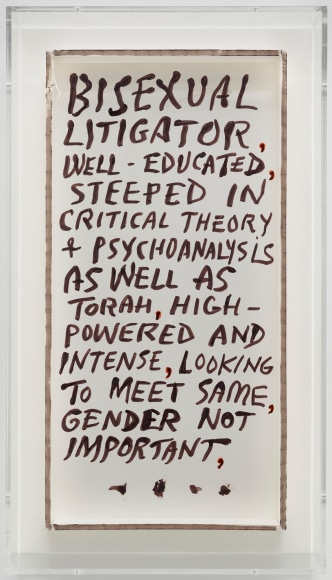 BISEXUAL
LITIGATOR,
WELL-EDUCATED,
STEEPED IN
CRITICAL THEORY
+ PSYCHOANALYSIS
AS WELL AS
TORAH, HIGH-
POWERED AND
INTENSE, LOOKING
TO MEET SAME,
GENDER NOT
IMPORTANT,